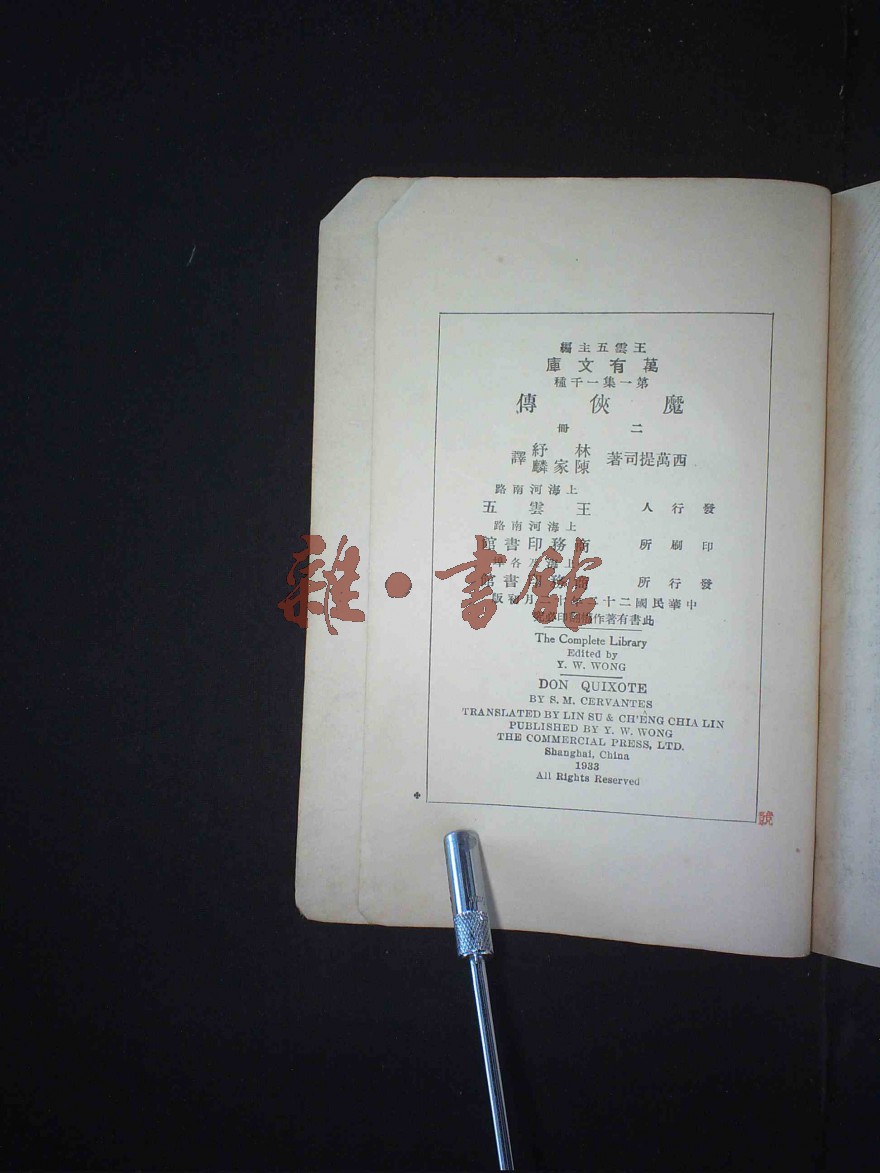 王雲五主編
萬有文庫
第一集一千種
魔俠傳
二冊
西萬提司著 林紓 陳家麟 譯
上海河南路
發行人 王雲五
上海河南路
印刷所 商務印書館
上海及各埠
發行所 商務印書館
中華民國二十二年十二月初版
此書有著作權翻印必究
The Complete Library
Edited by
Y. W. WONG
DON QUIXOTE
BY S. M. CERVANTES
TRANSLATED BY LIN SU & CH'ÊNG CHIA LIN
PUBLISHED BY Y. W. WONG
THE COMMERCIAL PRESS, LTD.
Shanghai, China
1933
All Rights Reserved
雜·書館